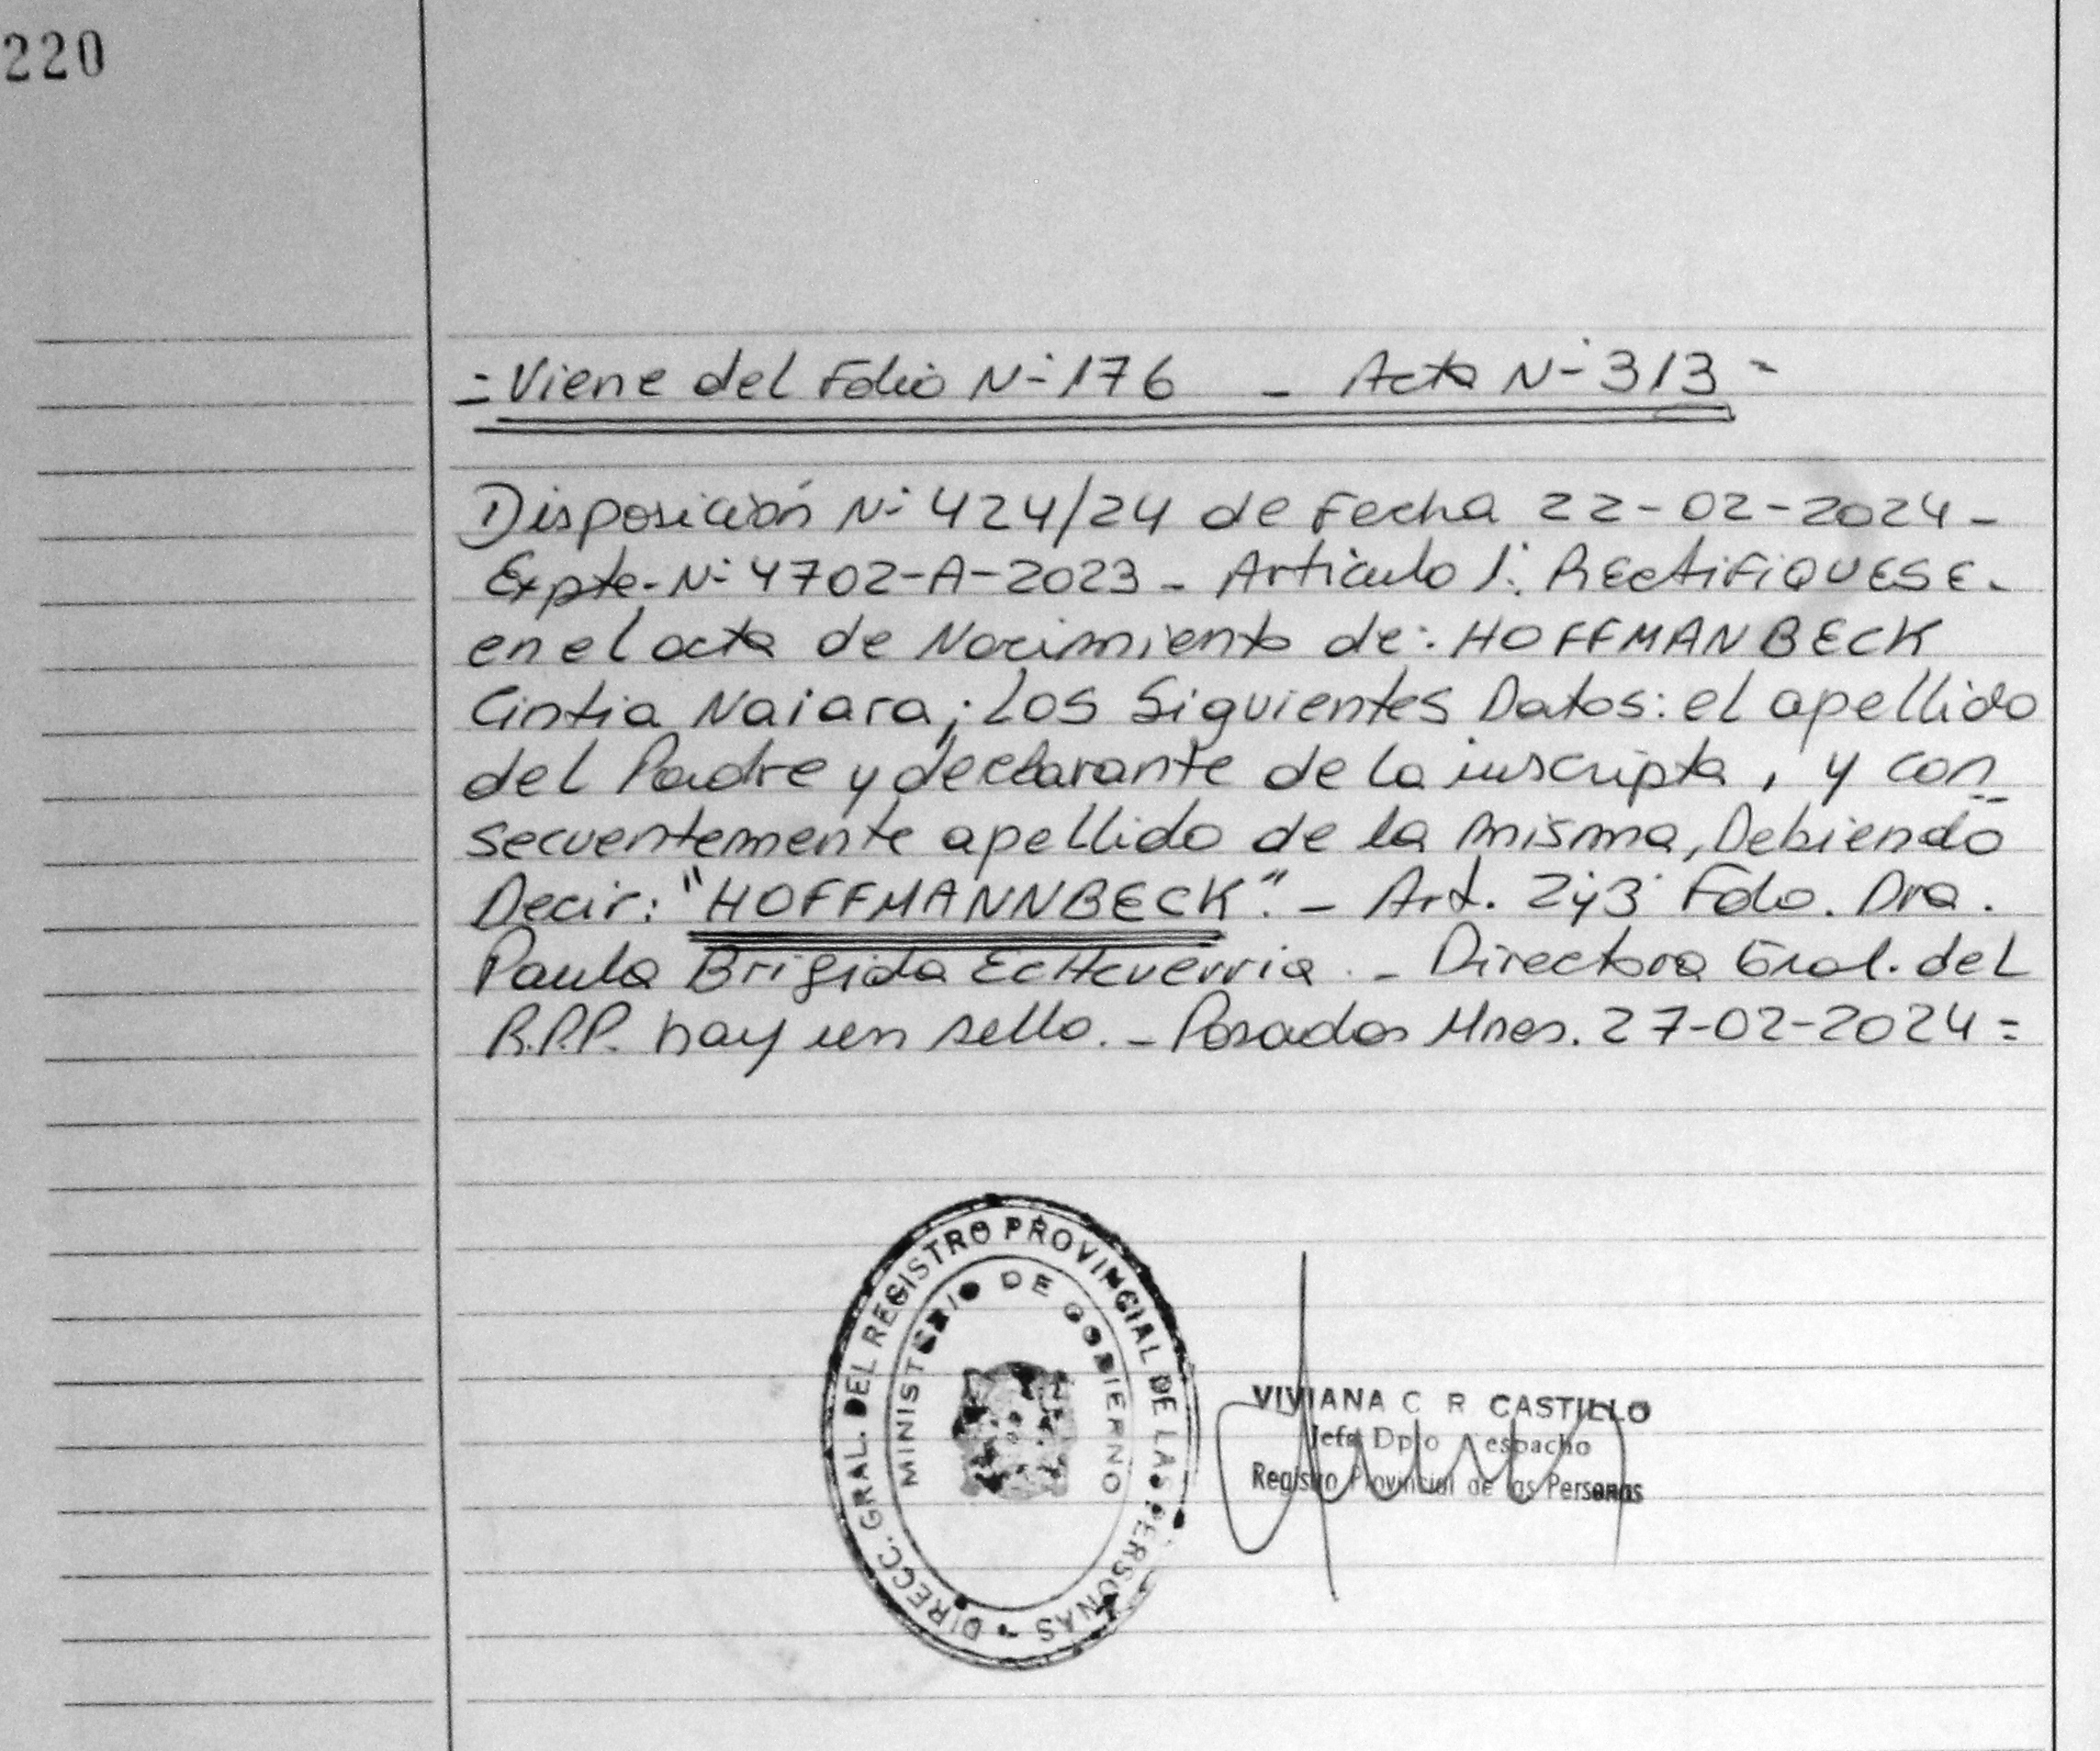 220
= Viene del Folio Nº 176 - Acta Nº 313 =
Disposición Nº 424/24 de Fecha 22-02-2024 -
Expte- Nº 4702-A-2023 - Articulo 1º: RECtiFiQUESE -
en el acta de Nacimiento de: HOFFMANBECK
Cintia Naiara; Los Siguientes Datos: el apellido
del Padre y declarante de la inscripta, y con
secuentemente apellido de la misma, Debiendo
Decir: "HOFFMANNBECK". - Art. 2º y 3º Fdo. Dra.
Paula Brigida EcHeverria. - Directora Gral. del
R.P.P. hay un sello. - Posadas Mnes. 27-02-2024 =
DIRECC. GRAL. DEL REGISTRO PROVINCIAL DE LAS PERSONAS
MINISTERIO DE GOBIERNO
VIVIANA C R CASTILLO
Jefa Dpto espacho
Registro Provincial de las Personas